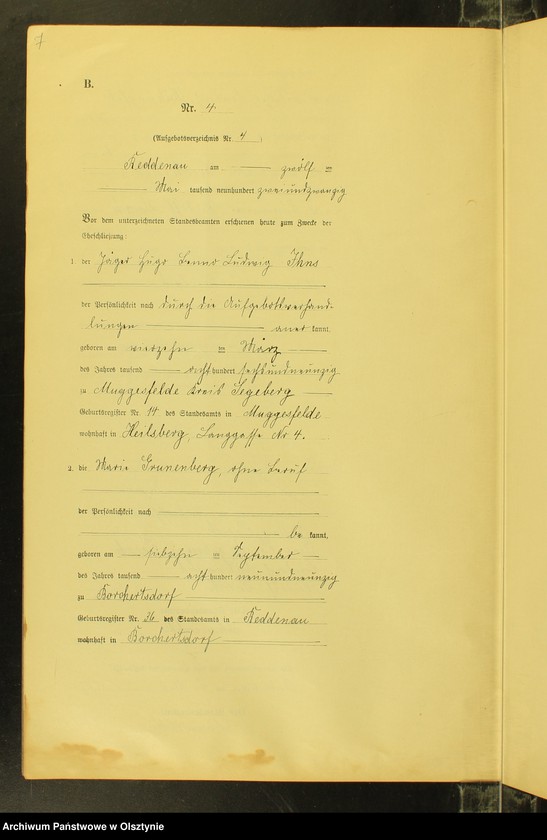 7
B.
Nr. 4
(Aufgebotsverzeichnis Nr. 4)
Reddenau am zwölften
Mai tausend neunhundert zweiundzwanzig
Vor dem unterzeichneten Standesbeamten erschienen heute zum Zwecke der
Eheschließung:
1. der Jäger Hugo Benno Ludwig Ihns
der Persönlichkeit nach durch die Aufgebotsverhand-
lungen anerkannt,
geboren am vierzehnten März
des Jahres tausend achthundert sechsundneunzig
zu Muggesfelde Kreis Segeberg
Geburtsregister Nr. 14 des Standesamts in Muggesfelde
wohnhaft in Heilsberg, Langgasse Nr 4.
2. die Marie Grunenberg, ohne Beruf
der Persönlichkeit nach
bekannt,
geboren am siebzehnten September
des Jahres tausend achthundert neunundneunzig
zu Borchertsdorf
Geburtsregister Nr. 36 des Standesamts in Reddenau
wohnhaft in Borchertsdorf
Archiwum Państwowe w Olsztynie